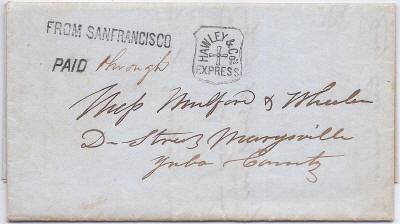 FROM SANFRANCISCO
PAID through
HAWLEY & Co's
EXPRESS
Mess Mulford & Wheeler
D-Street Marysville
Yuba County